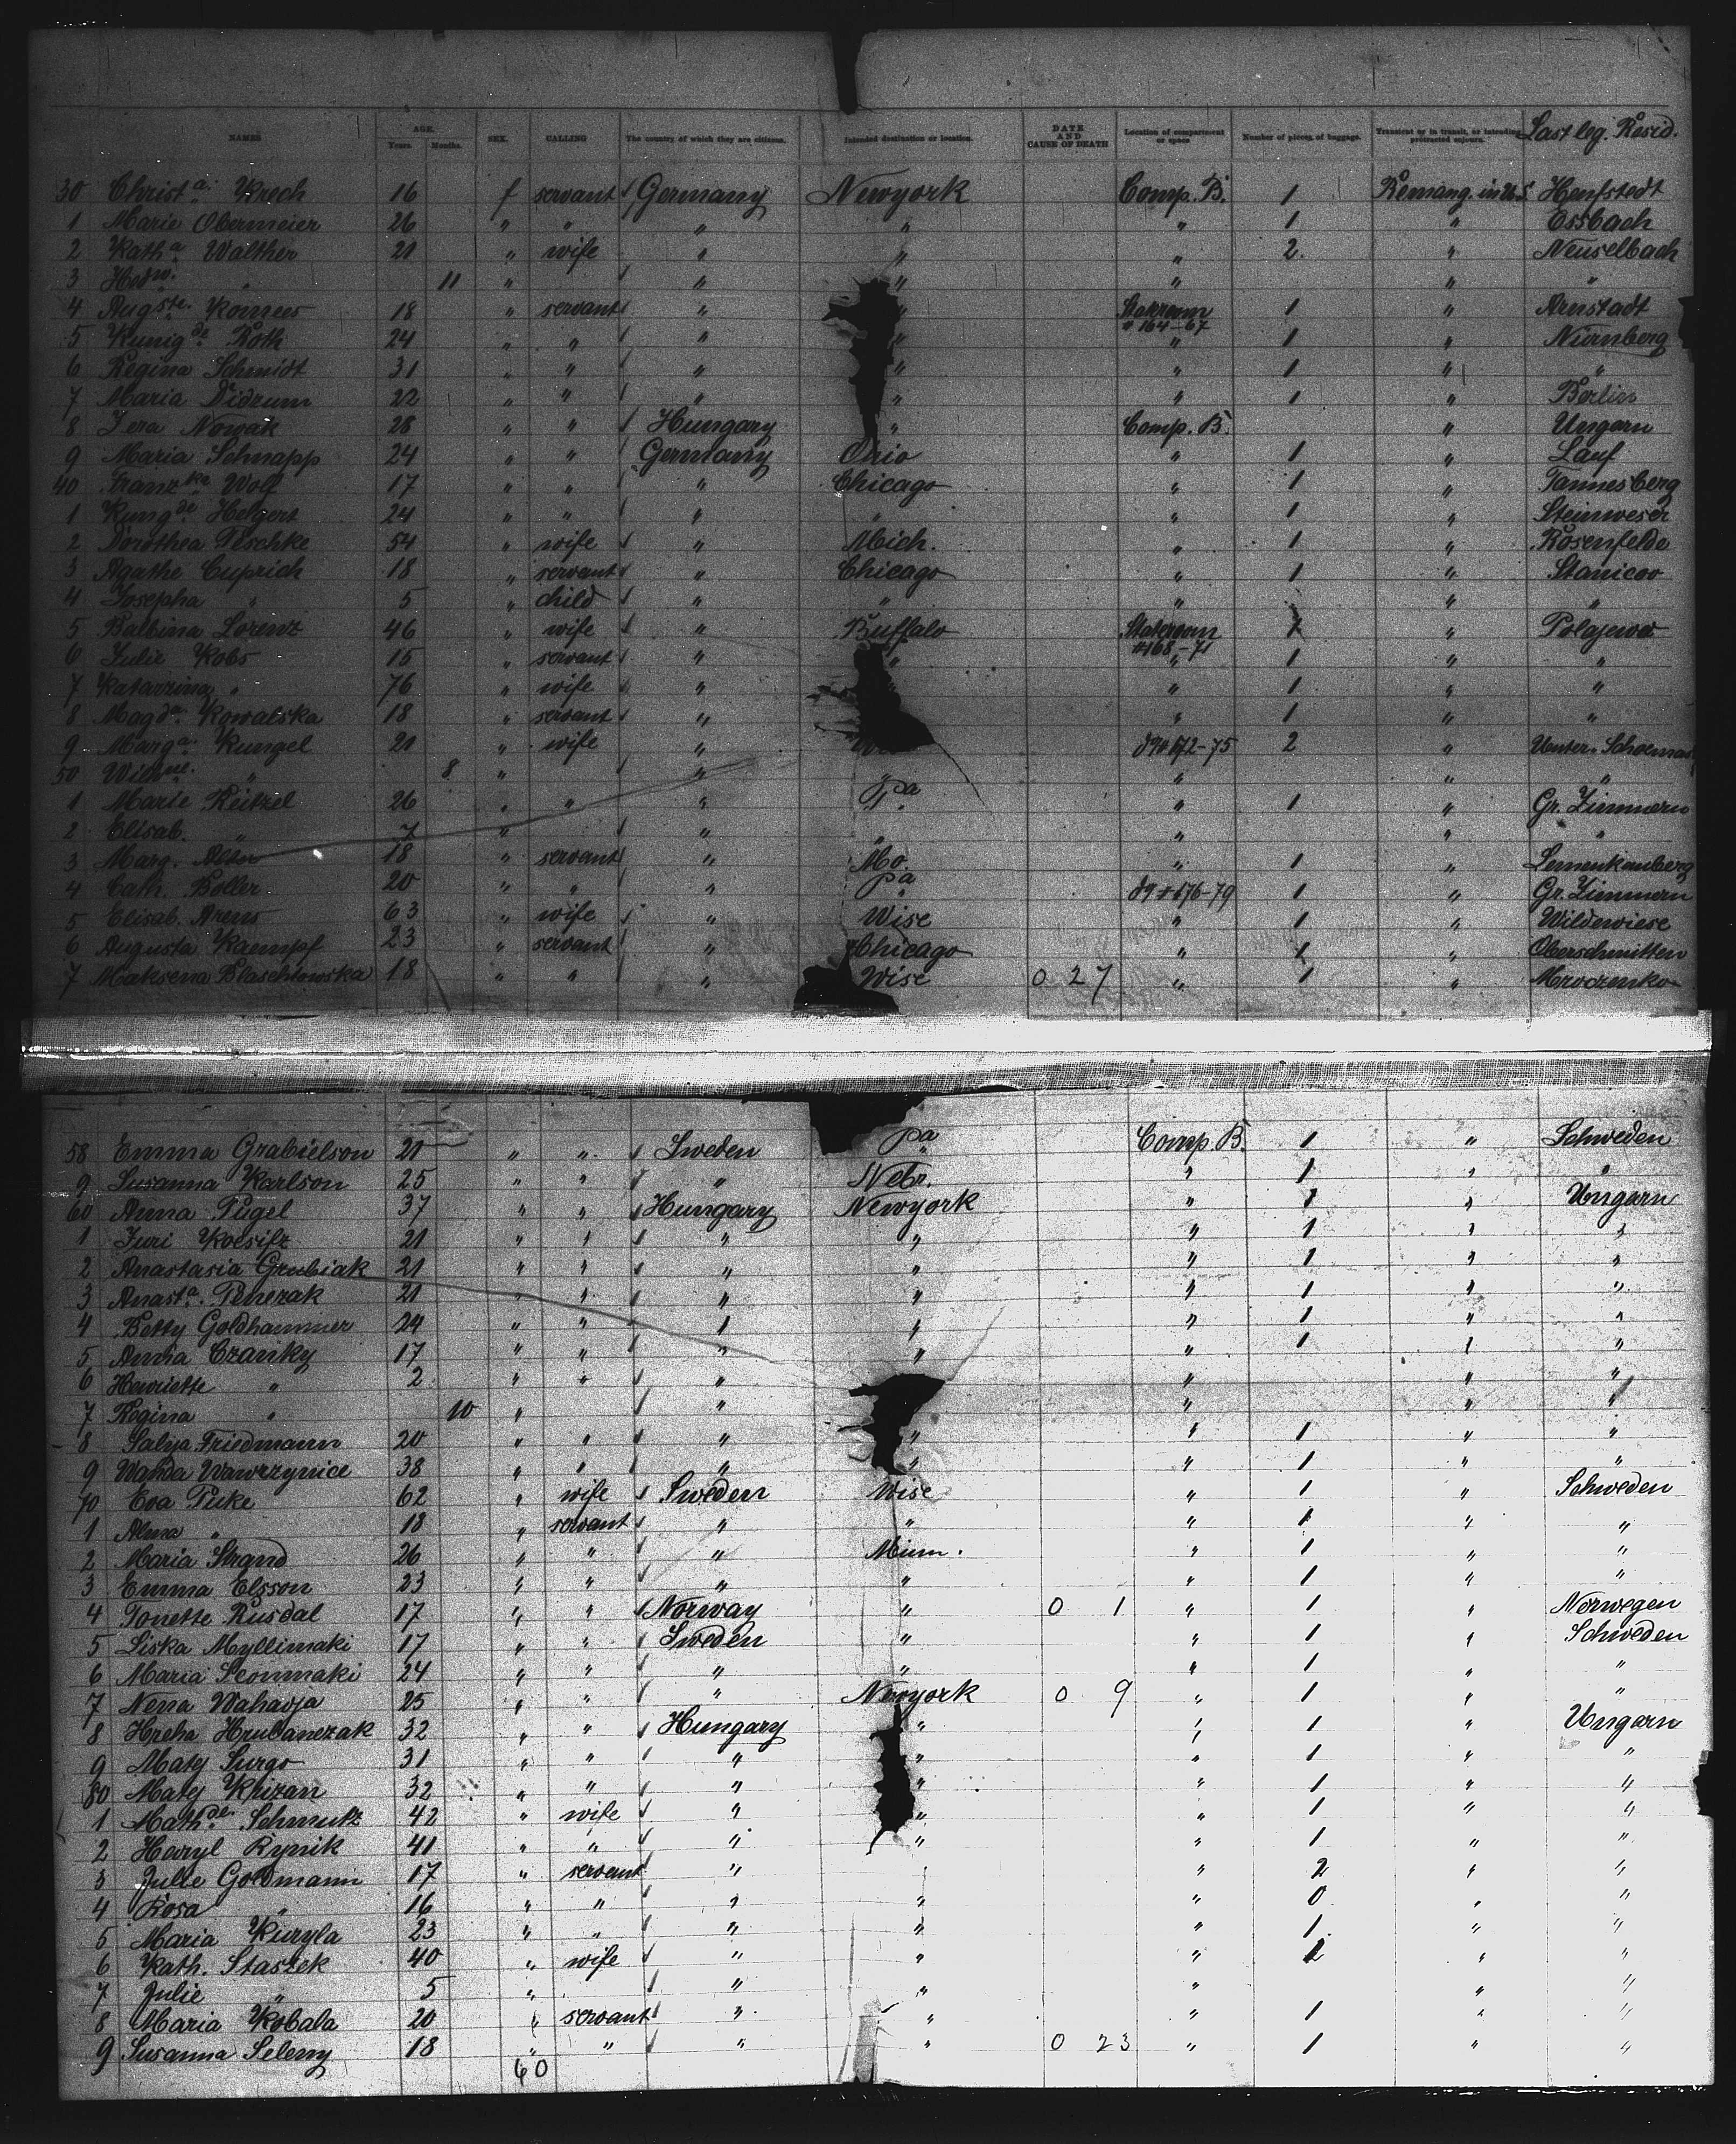 NAMES AGE. Years. Months. SEX. CALLING The country of which they are citizens. Intended destination or location. DATE AND CAUSE OF DEATH Location of compartment or space Number of pieces of baggage. Transient or in transit, or intending protracted sojourn. Last leg. Resid.
30 Christa. Krech 16 f servant Germany Newyork Comp. B. 1 Remang. in U.S. Henfstedt
1 Marie Obermeier 26 " " " " " 1 " Essbach
2 Katha Walther 21 " wife " " " 2 " Neuselbach
3 Hedw. " 11 " " " " " "
4 Augste. Komees 18 " servant " " Stateroom # 164-67 1 " Arnstadt
5 Kunigde. Roth 24 " " " " " 1 " Nürnberg
6 Regina Schmidt 31 " " " " 1 " "
7 Maria Didrum 22 " " " " " 1 " Berlin
8 Jera Nowak 28 " " Hungary " Comp. B. " Ungarn
9 Maria Schnapp 24 " " Germany Ohio " 1 " Lauf
40 Franzka Wolf 17 " " " Chicago " 1 " Tannesberg
1 Kungde Helgert 24 " " " " " 1 " Steinweser
2 Dorothea Peschke 54 " wife " Mich. " 1 " Rosenfelde
3 Agathe Cuprich 18 " servant " Chicago " 1 " Stanicoo
4 Josepha " 5 " child " " " " "
5 Balbina Lorenz 46 " wife " Buffalo Stateroom #168-71 1 " Polajewo
6 Julie Kobs 15 " servant " " " 1 " "
7 Katarzina " 76 " wife " " " 1 " "
8 Magda. Kowalska 18 " servant " " 1 " "
9 Marga. Kungel 21 " wife " do # 172-75 2 "
50 Wilhel. " 8 " " " " " "
1 Marie Reitzel 26 " " " Pa " 1 " Gr. Zimmern
2 Elisab. " 7 " " " " " "
3 Marg. 18 " servant " Mo. " 1 "
4 Cath. Boller 20 " " " Pa do # 176-79 1 " Gr. Zimmern
5 Elisab. Arens 63 " wife " Wisc " 1 " Wildewiese
6 Augusta Kaempf 23 " servant " Chicago " 1 " Oberschmitten
7 Maksena Blaschkowska 18 " " " Wisc 0 27 " 1 "
58 Emma Grabielson 21 " " Sweden Pa Comp. B. 1 " Schweden
9 Susanna Karlson 25 " " " Nebr. " 1 " "
60 Anna Pugel 37 " " Hungary Newyork " 1 " Ungarn
1 Juri Koesitz 21 " " " " " 1 " "
2 Anastasia Grubiak 21 " " " " " 1 " "
3 Anasta. Penezak 21 " " " " " 1 " "
4 Betty Goldhammer 24 " " " " " 1 " "
5 Anna Czanky 17 " " " " " 1 " "
6 Henriette " 2 " " " " " "
7 Regina " 10 " " " " "
8 Salya Friedmann 20 " " " " " 1 " "
9 Wanda Wawrzynice 38 " " " " " 1 " "
70 Eva Puke 62 " wife Sweden Wisc " 1 " Schweden
1 Alma " 18 " servant " " " 1 " "
2 Maria Strand 26 " " " Minn. " 1 " "
3 Emma Elsson 23 " " " " " 1 " "
4 Tonette Rusdal 17 " " Norway " 0 1 " 1 " Norwegen
5 Liska Myllimaki 17 " " Sweden " " 1 " Schweden
6 Maria Leonmaki 24 " " " " " 1 " "
7 Nena Wahavja 25 " " " Newyork 0 9 " 1 " "
8 Hreha Hrubanezak 32 " " Hungary " " 1 " Ungarn
9 Maty Surgo 31 " " " " " 1 " "
80 Maty Krizan 32 " " " " " 1 " "
1 Mathde. Schmutz 42 " wife " " " 1 " "
2 Haryl Rypik 41 " " " " " 1 " "
3 Julie Goldmann 17 " servant " " 2 " "
4 Rosa " 16 " " " " " 0 " "
5 Maria Kuryla 23 " " " " " 1 " "
6 Kath. Staszek 40 " wife " " " 2 " "
7 Julie " 5 " " " " " "
8 Maria Kobala 20 " servant " " " 1 " "
9 Susanna Seleny 18 " " " " 0 23 " 1 " "
60